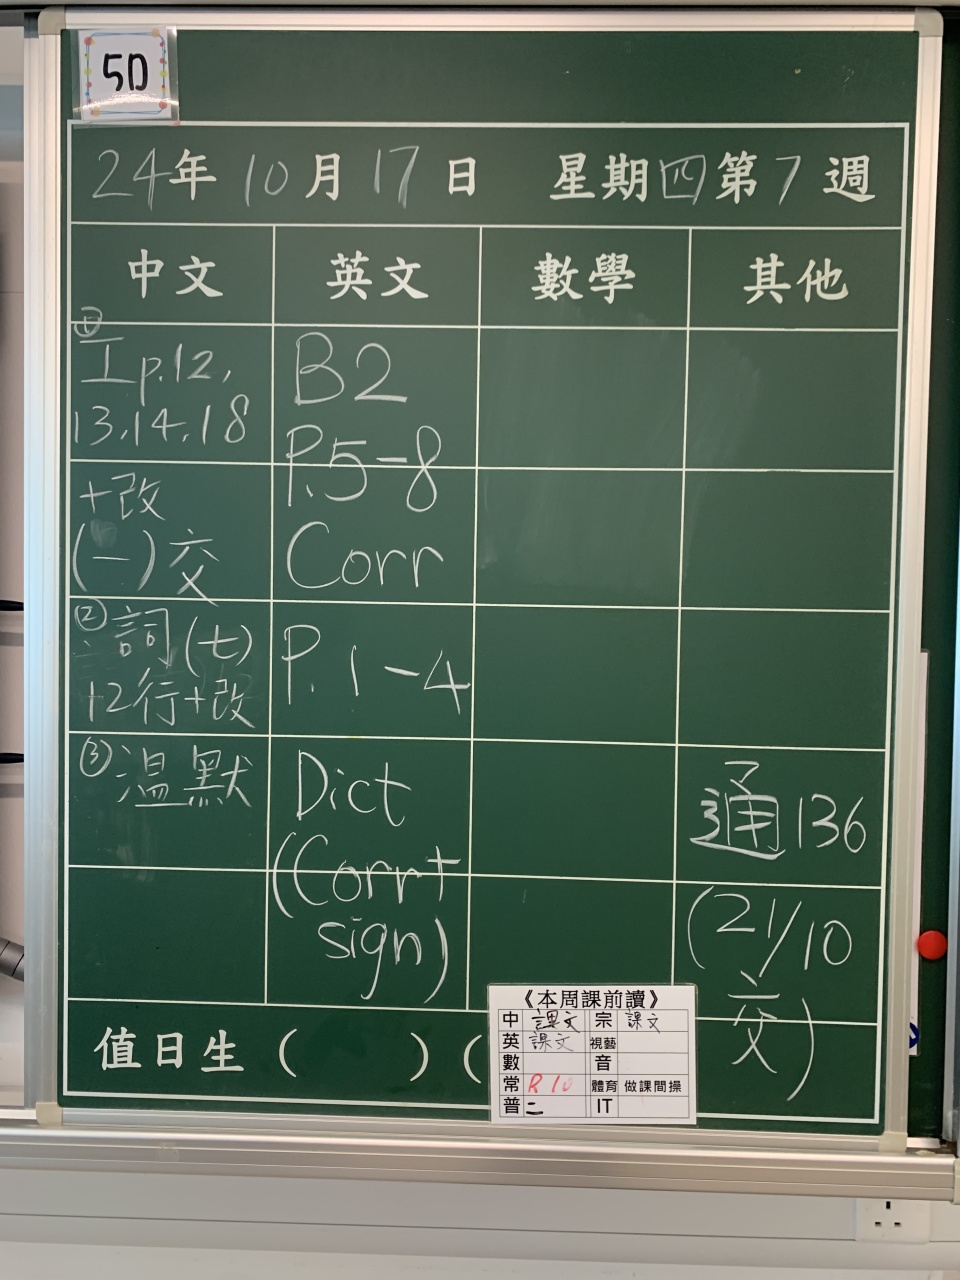 5D
24年10月17日 星期四第7週
中文 英文 數學 其他
①
工p.12,
13,14,18
+改
(一)交
②詞(七)
+2行+改
③温默
B2
P.5-8
Corr
P.1-4
Dict
(Corr+
sign)
通136
(21/10
交)
值日生( )(
《本周課前讀》
中 課文 宗 課文
英 課文 視藝
數 音
常 R10 體育 做課間操
普 二 IT